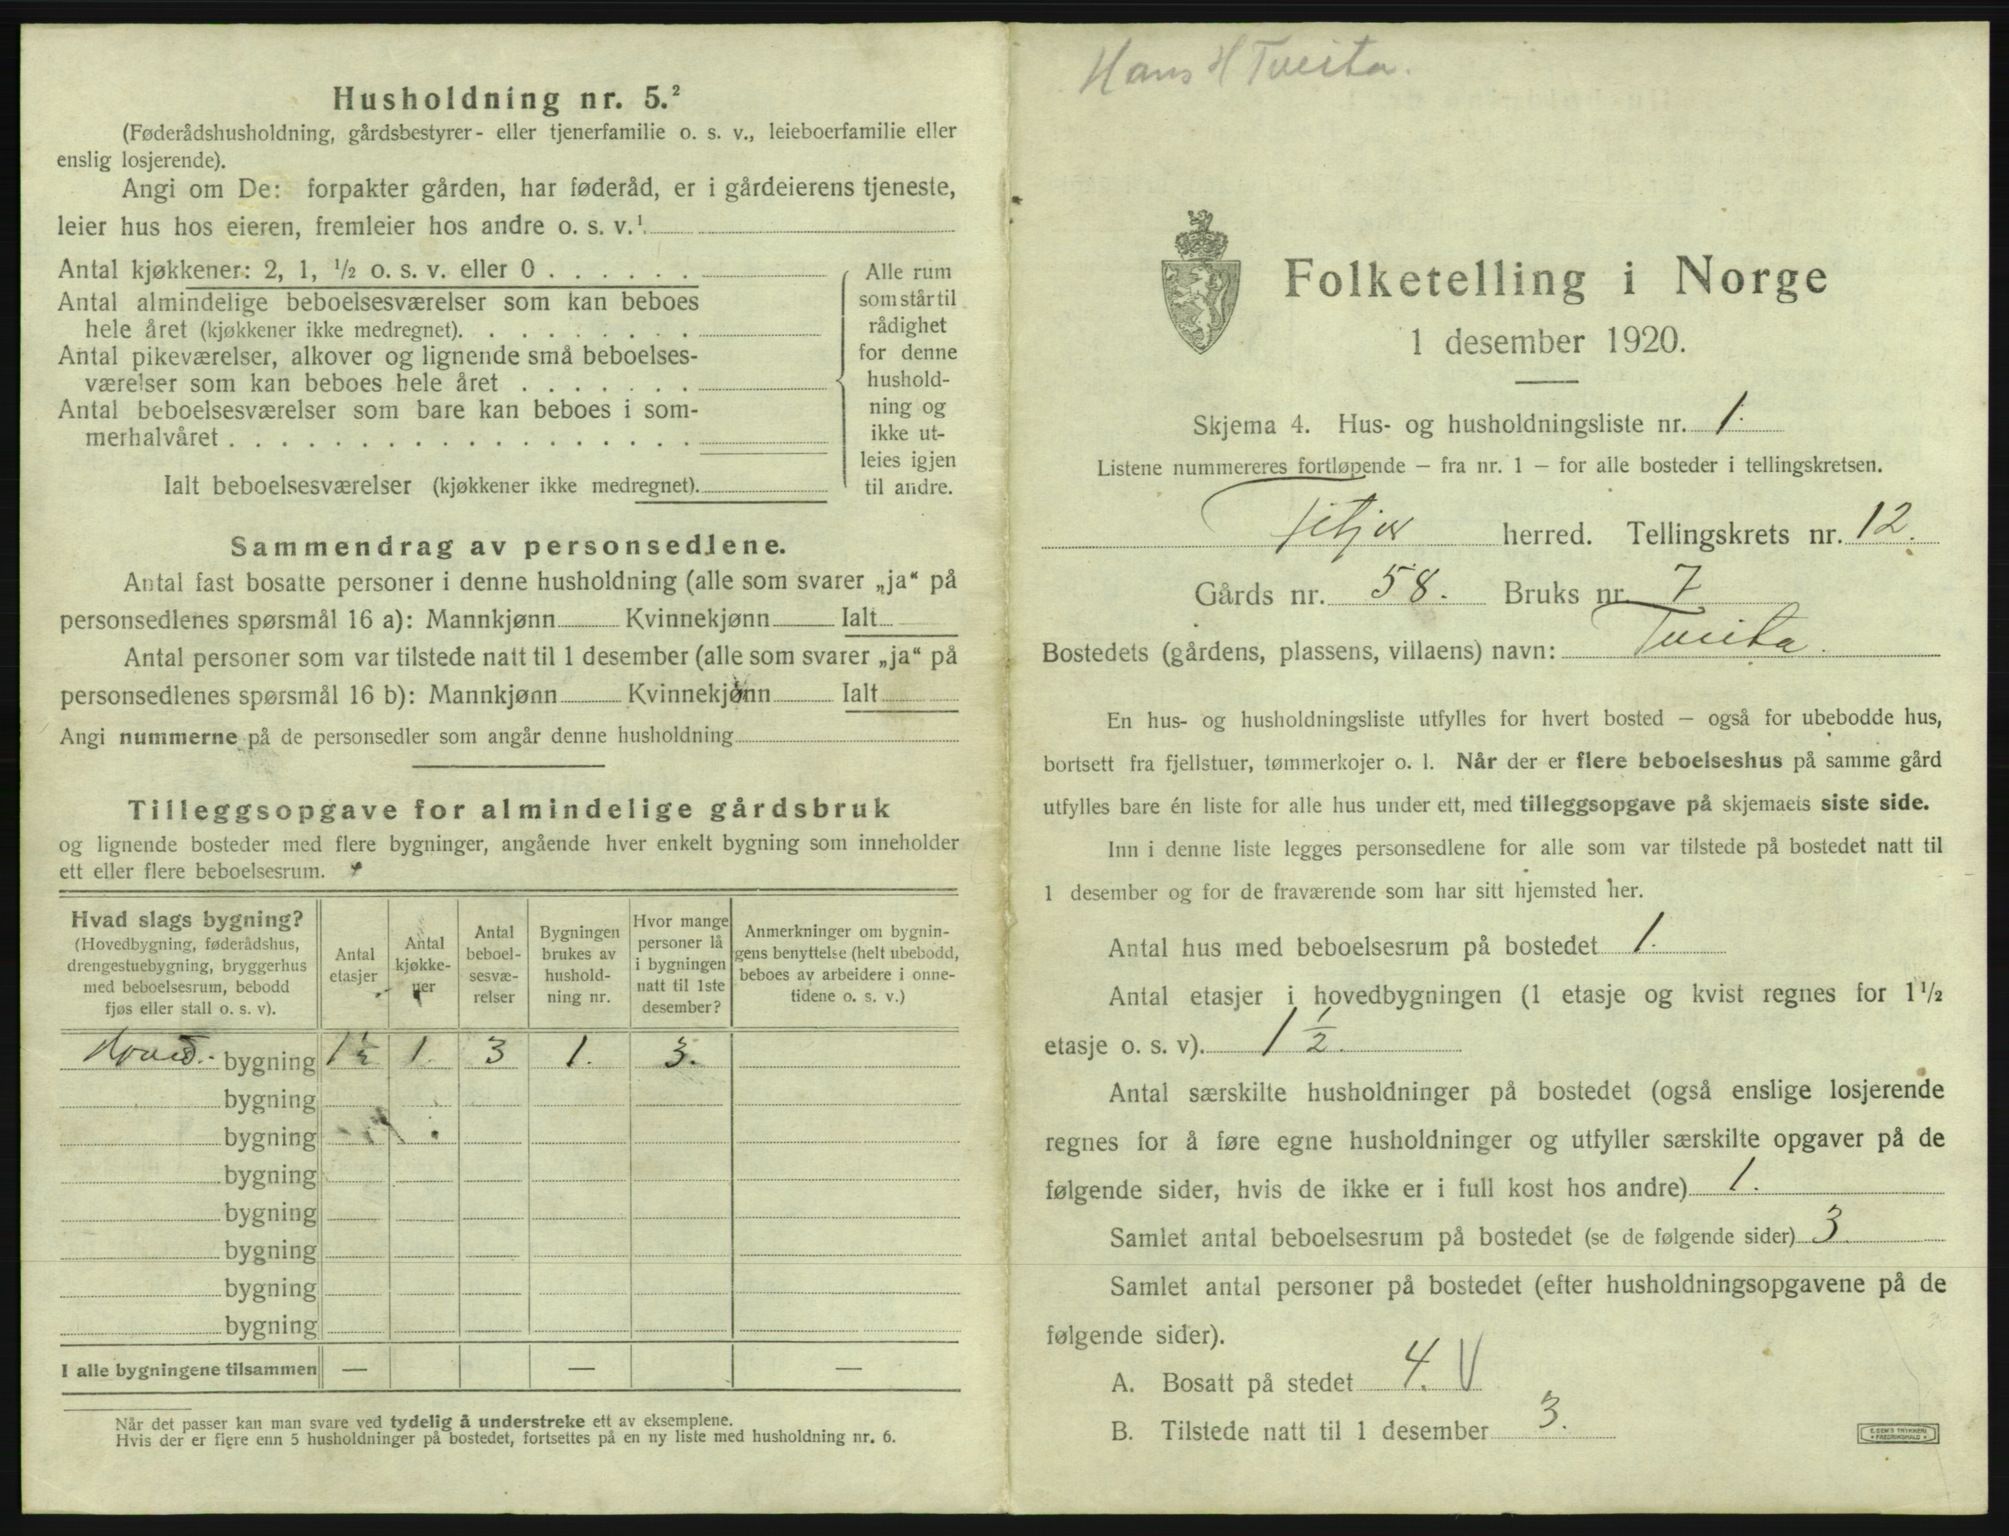 Husholdning nr. 5.²
(Føderådshusholdning, gårdsbestyrer- eller tjenerfamilie o. s. v., leieboerfamilie eller
enslig losjerende).
Angi om De: forpakter gården, har føderåd, er i gårdeierens tjeneste,
leier hus hos eieren, fremleier hos andre o. s. v.¹
Antal kjøkkener: 2, 1, ½ o. s. v. eller 0 . . . . . .
Antal almindelige beboelsesværelser som kan beboes
hele året (kjøkkener ikke medregnet). . . . . . . . .
Antal pikeværelser, alkover og lignende små beboelses-
værelser som kan beboes hele året . . . . . . .
Antal beboelsesværelser som bare kan beboes i som-
merhalvåret . . . . . . . . . . . . . . . . . .
Ialt beboelsesværelser (kjøkkener ikke medregnet).
Alle rum
som står til
rådighet
for denne
hushold-
ning og
ikke ut-
leies igjen
til andre.
Sammendrag av personsedlene.
Antal fast bosatte personer i denne husholdning (alle som svarer „ja“ på
personsedlenes spørsmål 16 a): Mannkjønn Kvinnekjønn Ialt
Antal personer som var tilstede natt til 1 desember (alle som svarer „ja“ på
personsedlenes spørsmål 16 b): Mannkjønn Kvinnekjønn Ialt
Angi nummerne på de personsedler som angår denne husholdning
Tilleggsopgave for almindelige gårdsbruk
og lignende bosteder med flere bygninger, angående hver enkelt bygning som inneholder
ett eller flere beboelsesrum.
Hvad slags bygning?
(Hovedbygning, føderådshus,
drengestuebygning, bryggerhus
med beboelsesrum, bebodd
fjøs eller stall o. s. v).
Antal
etasjer
Antal
kjøkke-
ner
Antal
beboel-
sesvæ-
relser
Bygningen
brukes av
hushold-
ning nr.
Hvor mange
personer lå
i bygningen
natt til 1ste
desember?
Anmerkninger om bygnin-
gens benyttelse (helt ubebodd,
beboes av arbeidere i onne-
tidene o. s. v.)
Hoved.- bygning 1½ 1. 3 1. 3.
bygning
bygning
bygning
bygning
bygning
bygning
bygning
I alle bygningene tilsammen — — —
Når det passer kan man svare ved tydelig å understreke ett av eksemplene.
Hvis der er flere enn 5 husholdninger på bostedet, fortsettes på en ny liste med husholdning nr. 6.
Hans H Tveita.
Folketelling i Norge
1 desember 1920.
Skjema 4. Hus- og husholdningsliste nr. 1.
Listene nummereres fortløpende — fra nr. 1 — for alle bosteder i tellingskretsen.
Fitjar herred. Tellingskrets nr. 12.
Gårds nr. 58. Bruks nr. 7
Bostedets (gårdens, plassens, villaens) navn: Tveita.
En hus- og husholdningsliste utfylles for hvert bosted — også for ubebodde hus,
bortsett fra fjellstuer, tømmerkojer o. l. Når der er flere beboelseshus på samme gård
utfylles bare én liste for alle hus under ett, med tilleggsopgave på skjemaets siste side.
Inn i denne liste legges personsedlene for alle som var tilstede på bostedet natt til
1 desember og for de fraværende som har sitt hjemsted her.
Antal hus med beboelsesrum på bostedet 1.
Antal etasjer i hovedbygningen (1 etasje og kvist regnes for 1½
etasje o. s. v). 1½.
Antal særskilte husholdninger på bostedet (også enslige losjerende
regnes for å føre egne husholdninger og utfyller særskilte opgaver på de
følgende sider, hvis de ikke er i full kost hos andre) 1.
Samlet antal beboelsesrum på bostedet (se de følgende sider) 3.
Samlet antal personer på bostedet (efter husholdningsopgavene på de
følgende sider).
A. Bosatt på stedet 4. V
B. Tilstede natt til 1 desember 3.